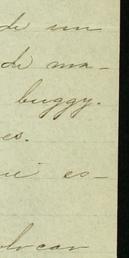 de un
de ma-
buggy.
es.
es-